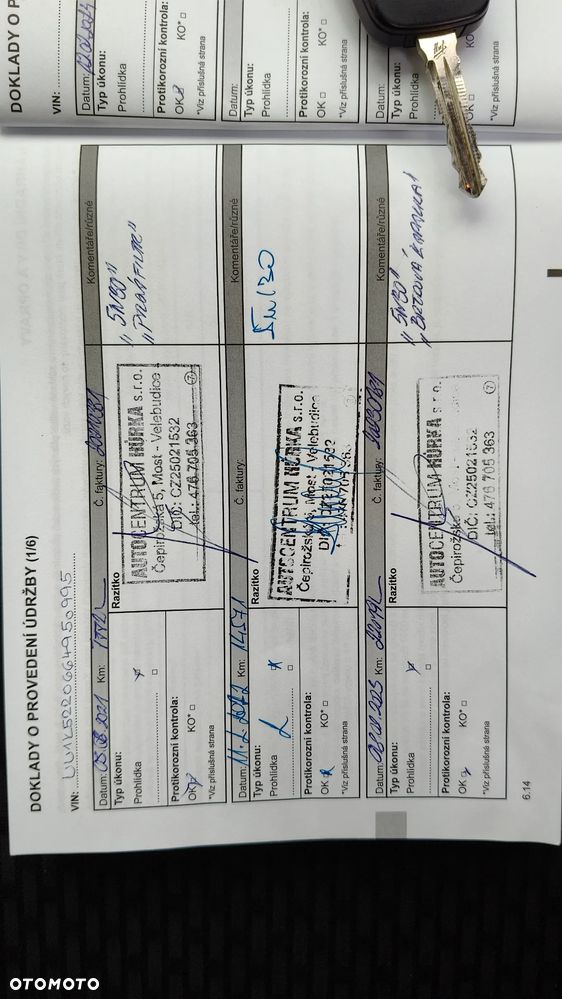 DOKLADY O P
VIN:
Datum:
Typ úkonu:
Prohlídka
Protikorozní kontrola:
OK
KO* □
*Viz příslušná strana
Datum:
Typ úkonu:
Prohlídka
Protikorozní kontrola:
OK □
KO* □
*Viz příslušná strana
Typ úkonu:
Prohlídka
KO* □
*Viz příslušná strana
DOKLADY O PROVEDENÍ ÚDRŽBY (1/6)
VIN: UU1L5220664950995
Datum: 05.08.2021 Km: Č. faktury:
Komentáře/různé
Typ úkonu:
Prohlídka
Razítko
Protikorozní kontrola:
OK
KO* □
*Viz příslušná strana
AUTOCENTRUM HŮRKA s.r.o.
Čepirožská 5, Most - Velebudice
DIČ: CZ25021532
tel.: 476 705 363
7
"5W30"
"PRACH FILTR"
Datum: 11.2.2022 Km: 14571 Č. faktury:
Komentáře/různé
Typ úkonu:
Prohlídka 2
Razítko
Protikorozní kontrola:
OK
KO* □
*Viz příslušná strana
AUTOCENTRUM HŮRKA s.r.o.
Čepirožská 5, Most - Velebudice
5W30
Datum: 02.01.2023 Km: Č. faktury:
Komentáře/různé
Typ úkonu:
Prohlídka
Razítko
Protikorozní kontrola:
OK
KO* □
*Viz příslušná strana
AUTOCENTRUM HŮRKA s.r.o.
Čepirožská
DIČ: CZ25021532
tel.: 476 705 363
7
"5W30"
"BRZDOVÁ KAPALINA"
6.14
OTOMOTO